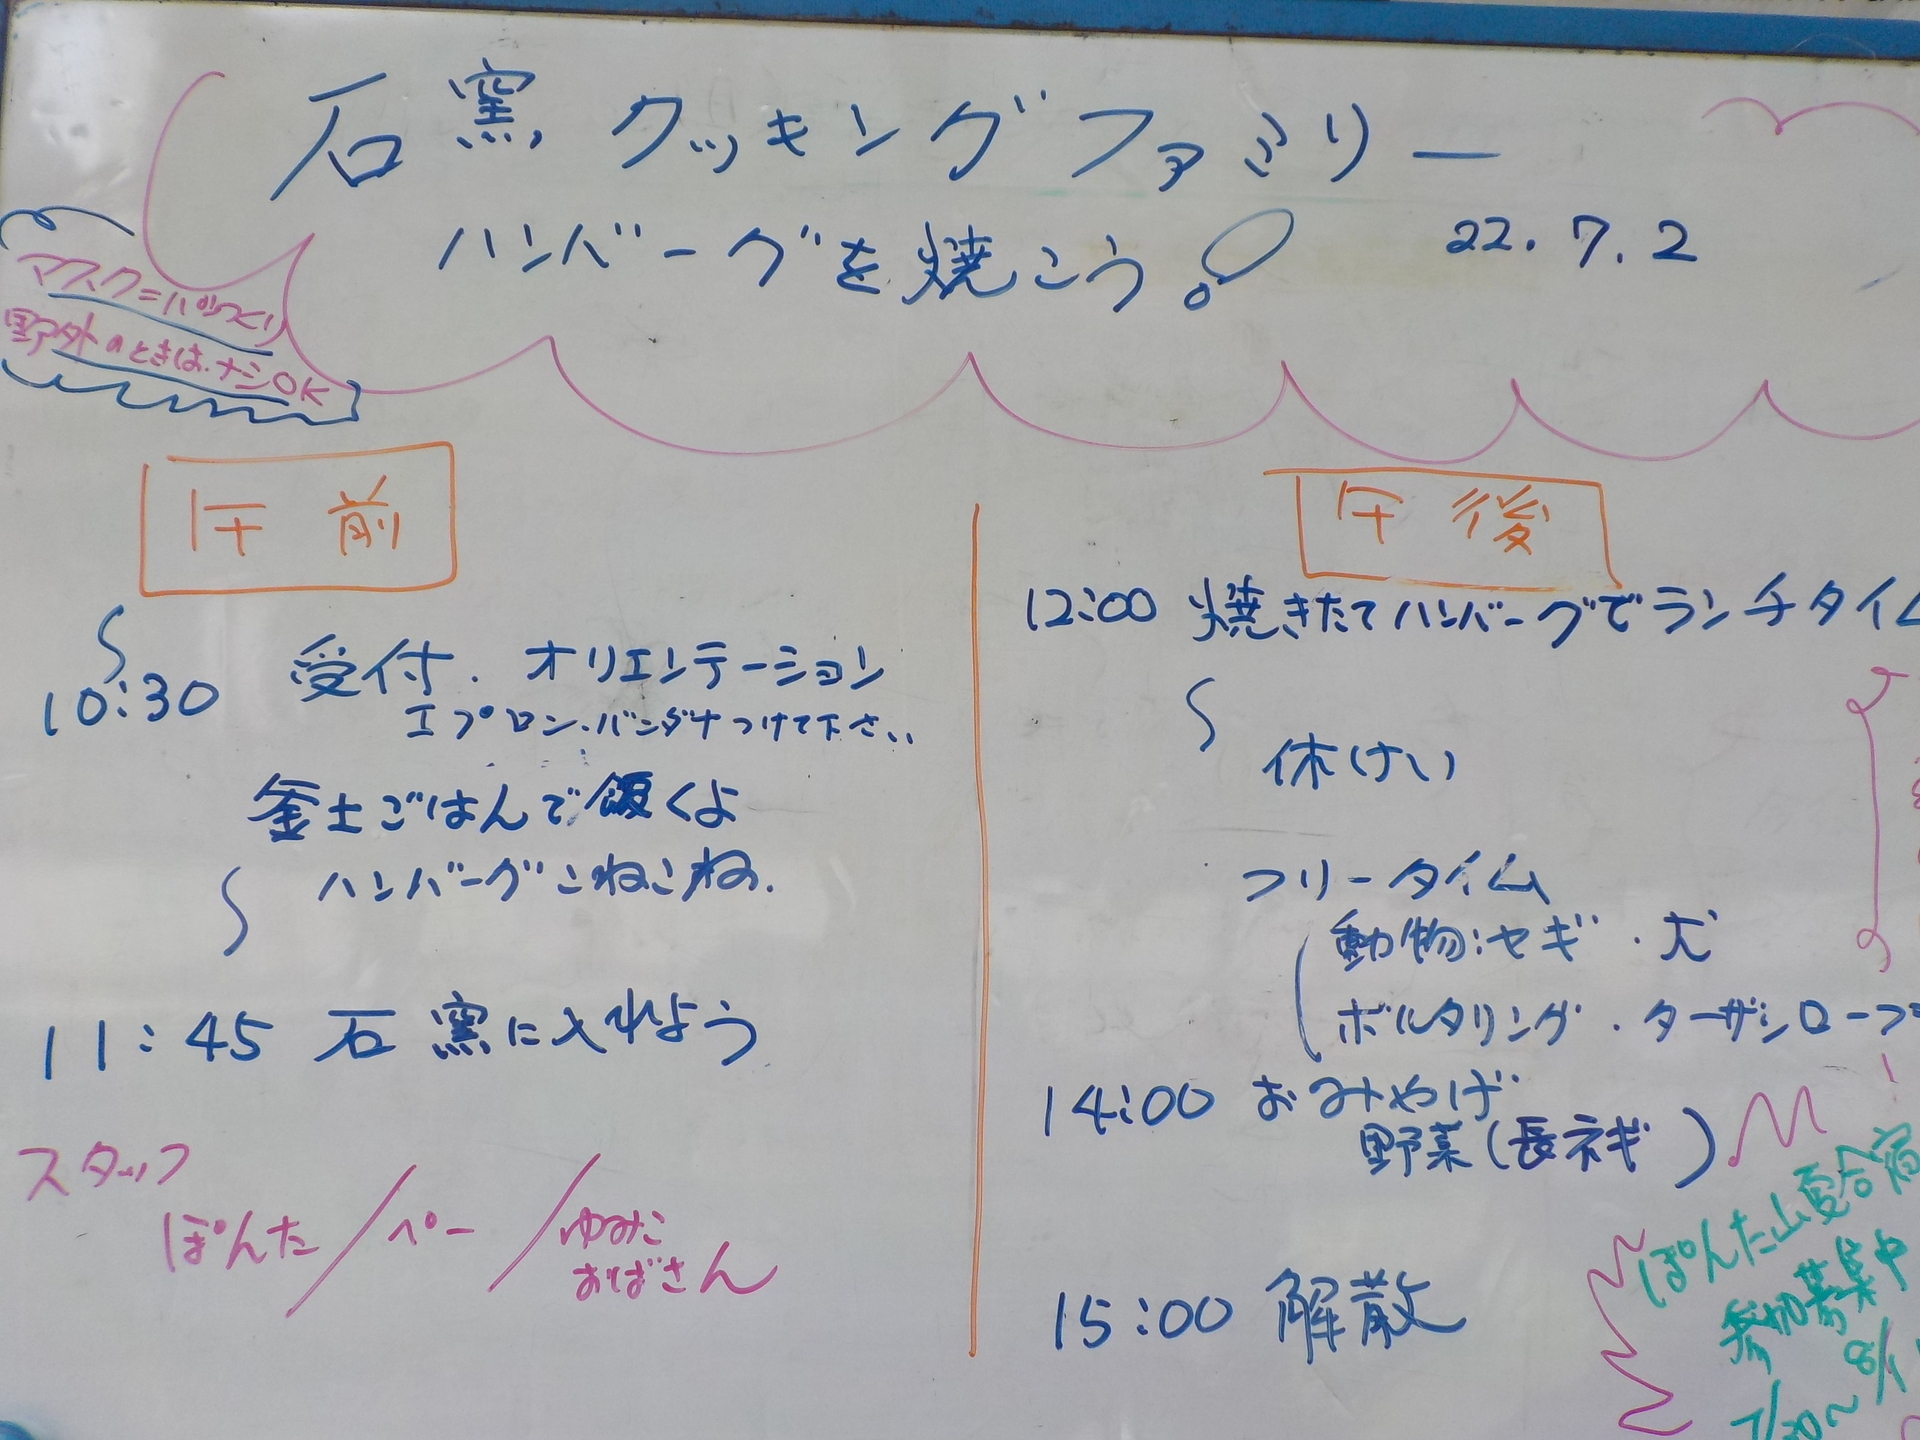 石窯クッキングファミリー
ハンバーグを焼こう!
22.7.2
マスク=パックリ
野外のときはナシOK
午前
10:30 受付.オリエンテーション
エプロン.バンダナつけて下さい
釜土ごはんで飯くよ
ハンバーグこねこね.
11:45 石窯に入れよう
スタッフ
ぽんた/ペー/ゆみこ
おばさん
午後
12:00 焼きたてハンバーグでランチタイム
休けい
フリータイム
動物:ヤギ・犬
ボルタリング・ターザンロープ
14:00 おみやげ
野菜(長ネギ)
15:00 解散
ぽんた山夏合宿
参加募集中
7/30〜8/1